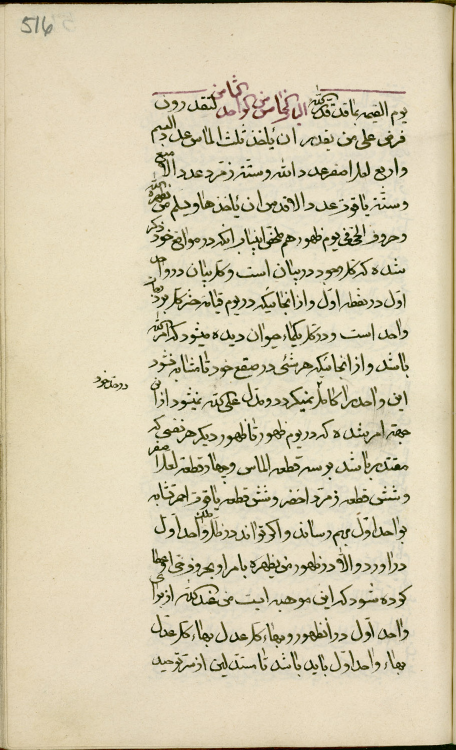 516
یوم القیمه بما قد قدر الله الباب الخامس من الواحد الثامن لتقدرون
فرض علی من یقدر ان یاخذ ثلث الماس عدد البسم
و اربع لعل اصفر عدد الله و ستة زمرد عدد الامنع
و ستة یاقوت عدد الاقدس ان یاخذها و یسلم من یظهره الله
و حروف الحی فی یوم ظهورهم ملخص این باب آنکه در مواقع خود ذکر
شده که کل وجود در بیان است و کل بیان در واحد
اول در نقطه اول و از آنجائیکه در یوم قیامه خیر کل بودن
واحد است و در کل بهاء حیوان دیده میشود که لله
باشد و از آنجائیکه هر شئی در صقع خود تا مشابه نشود
این واحد را کامل نمیگردد و مدل علی الله نمیشود از این
جهة امر شده که در یوم ظهور تا ظهور دیگر هر نفسی که
در حد خود
مقتدر باشد بر سه قطعه الماس و چهار قطعه لعل اصفر
و شش قطعه زمرد اخضر و شش قطعه یاقوت احمر تشابه
بواحد اول بهم رساند و اگر تواند در ظل واحد اول
در آورد و الا در ظهور من یظهره بامر او بحروف حی او عطا
کرده شود که این موهبه ایست من عند الله از برای
واحد اول در آنظهور و بهاء کل عدل بهاء کل عدل
بهاء واحد اول باید باشد تا مستدلین از سر توحید